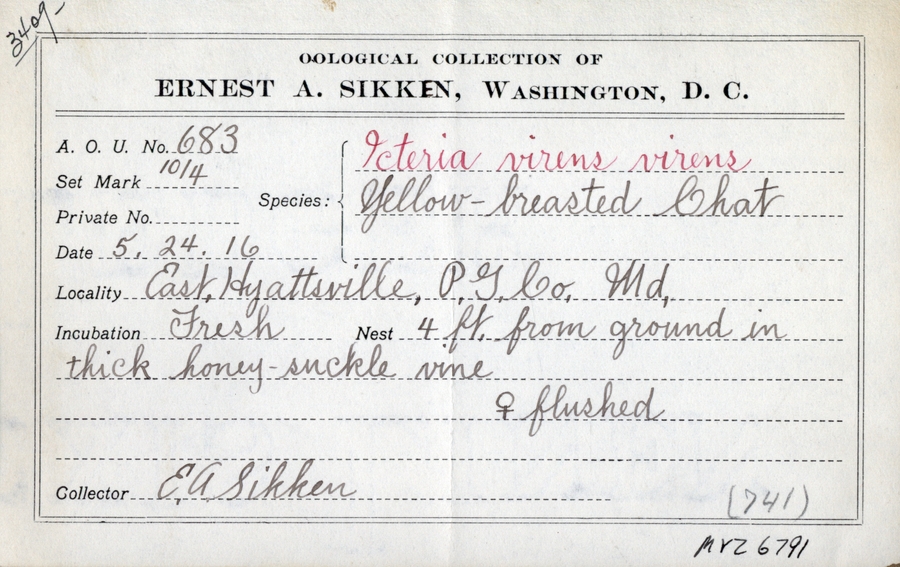 3409-
OOLOGICAL COLLECTION OF
ERNEST A. SIKKEN, WASHINGTON, D. C.
A. O. U. No. 683
Set Mark 10/4
Private No.
Date 5. 24. 16
Species: Icteria virens virens
Yellow-breasted Chat
Locality East, Hyattsville, P.G. Co. Md,
Incubation Fresh Nest 4 ft. from ground in
thick honey-suckle vine
♀ flushed
Collector E.A Sikken
(741)
MVZ 6791